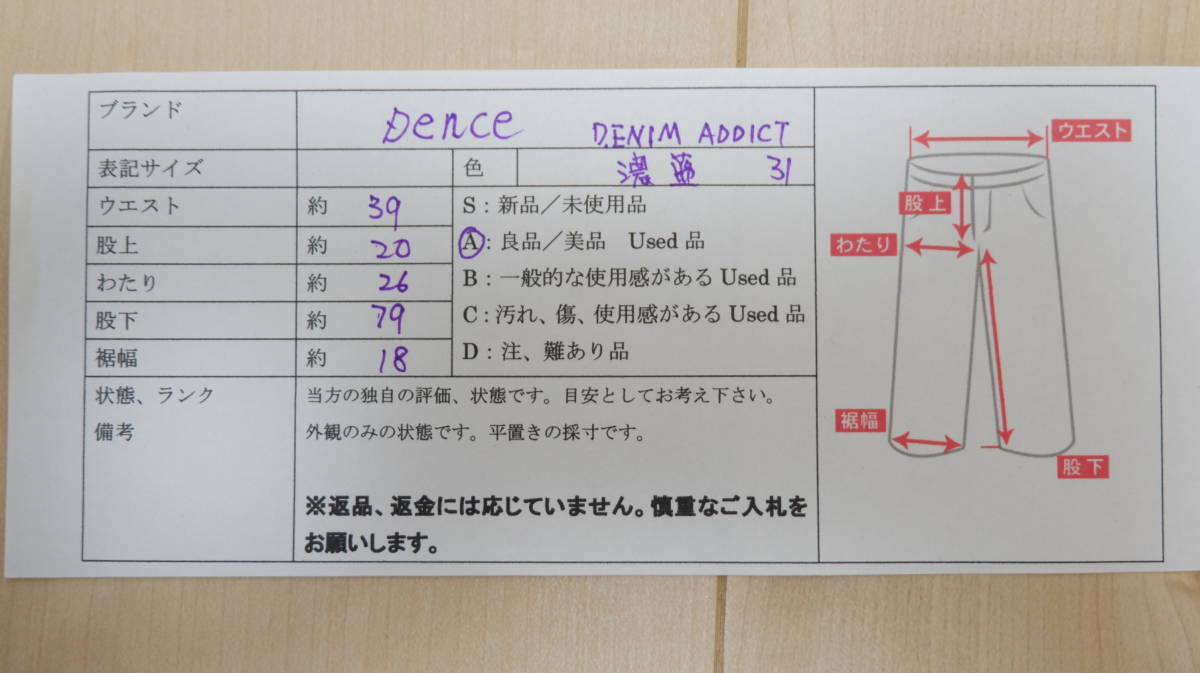 ブランド Dence D.ENIM ADDICT
表記サイズ 色 濃藍 31
ウエスト 約 39 S：新品／未使用品
股上 約 20 A：良品／美品 Used品
わたり 約 26 B：一般的な使用感があるUsed品
股下 約 79 C：汚れ、傷、使用感があるUsed品
裾幅 約 18 D：注、難あり品
状態、ランク 当方の独自の評価、状態です。目安としてお考え下さい。
備考 外観のみの状態です。平置きの採寸です。
※返品、返金には応じていません。慎重なご入札を
お願いします。
ウエスト
股上
わたり
裾幅
股下